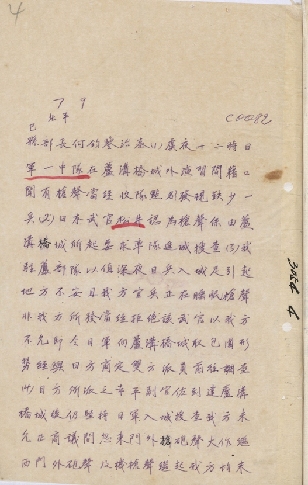 4
7 9
北平
C4482
部長何 密(1)虞夜一二時日
軍一中隊在蘆溝橋城外演習間藉口
聞有槍聲當經收隊點別發現缺少一
兵(2)日本武官松井認為槍聲係由蘆
溝橋城所起要求率隊進城搜查(3)我
駐蘆部隊以值深夜日兵入城足引起
地方不安且我方官兵正在睡眠槍聲
非我方所發當經拒絕該武官以我方
不允即令日軍向蘆溝橋城取包圍形
勢經與日方商定雙方派員前往調查
(4)日方所派之寺平副官佐到達蘆溝
橋城後仍堅持日軍入城搜查我方未
允正商議間忽東門外槍砲聲大作繼
西門外砲聲及機槍聲繼起我方均未